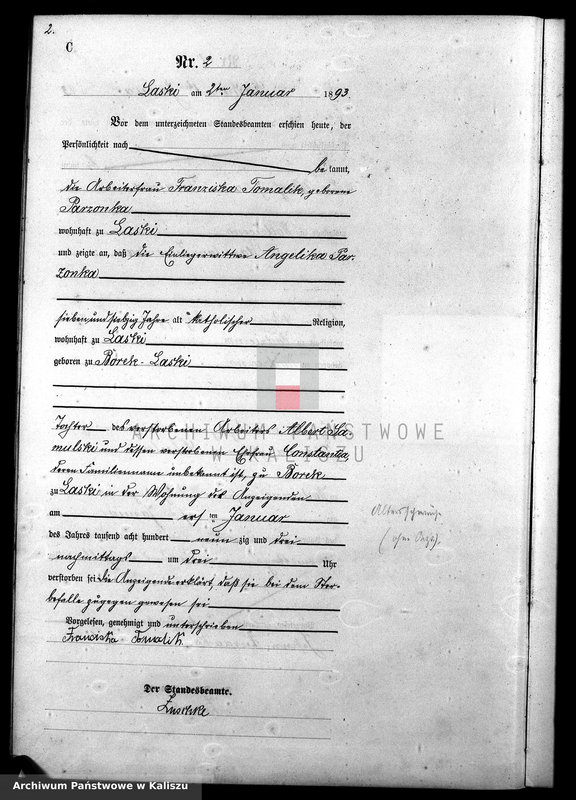 2.
C
Nr. 2
Laski am 2ten Januar 1893
Vor dem unterzeichneten Standesbeamten erschien heute, der
Persönlichkeit nach
bekannt,
die Arbeiterfrau Franziska Tomalek geborene
Parzonka
wohnhaft zu Laski
und zeigte an, daß die Einliegerwittwe Angelika Par-
zonka
sieben und siebzig Jahre alt katholischer Religion,
wohnhaft zu Laski
geboren zu Borek-Laski
Tochter des verstorbenen Arbeiters Albert Sa-
mulski und dessen verstorbenen Ehefrau Constantia
deren Familienname unbekannt ist, zu Borek
zu Laski in der Wohnung der Anzeigenden
am ersten Januar
des Jahres tausend acht hundert neunzig und drei
nachmittags um drei Uhr
verstorben sei. Die Anzeigende erklärt, daß sie bei dem Ster-
befalle zugegen gewesen sei
Vorgelesen, genehmigt und unterschrieben
Franciska Tomalek
Der Standesbeamte.
Altersschwäche
(ohne Arzt).
ARCHIWUM PAŃSTWOWE
W KALISZU
Archiwum Państwowe w Kaliszu